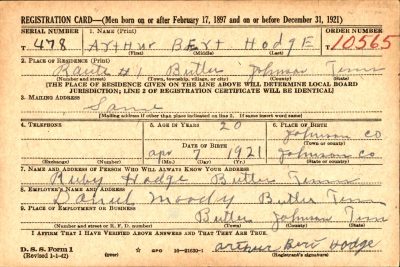 REGISTRATION CARD—(Men born on or after February 17, 1897 and on or before December 31, 1921)
SERIAL NUMBER 1. NAME (Print) ORDER NUMBER
T 478 Arthur Bert Hodge 10565
(First) (Middle) (Last)
2. PLACE OF RESIDENCE (Print)
Route #1 Butler Johnson Tenn
(Number and street) (Town, township, village, or city) (County) (State)
[THE PLACE OF RESIDENCE GIVEN ON THE LINE ABOVE WILL DETERMINE LOCAL BOARD
JURISDICTION; LINE 2 OF REGISTRATION CERTIFICATE WILL BE IDENTICAL]
3. MAILING ADDRESS
Same
[Mailing address if other than place indicated on line 2. If same insert word same]
4. TELEPHONE 5. AGE IN YEARS 6. PLACE OF BIRTH
20 Johnson Co
DATE OF BIRTH (Town or county)
Apr 7 1921 Johnson Co
(Exchange) (Number) (Mo.) (Day) (Yr.) (State or country)
7. NAME AND ADDRESS OF PERSON WHO WILL ALWAYS KNOW YOUR ADDRESS
Hodge Butler Tenn
8. EMPLOYER'S NAME AND ADDRESS
Daniel Moody Butler Tenn
9. PLACE OF EMPLOYMENT OR BUSINESS
Butler Johnson Tenn
(Number and street or R. F. D. number) (Town) (County) (State)
I AFFIRM THAT I HAVE VERIFIED ABOVE ANSWERS AND THAT THEY ARE TRUE.
D. S. S. Form 1 GPO 16—21630-1 Arthur Bert Hodge
(Revised 1-1-42) (Registrant's signature)